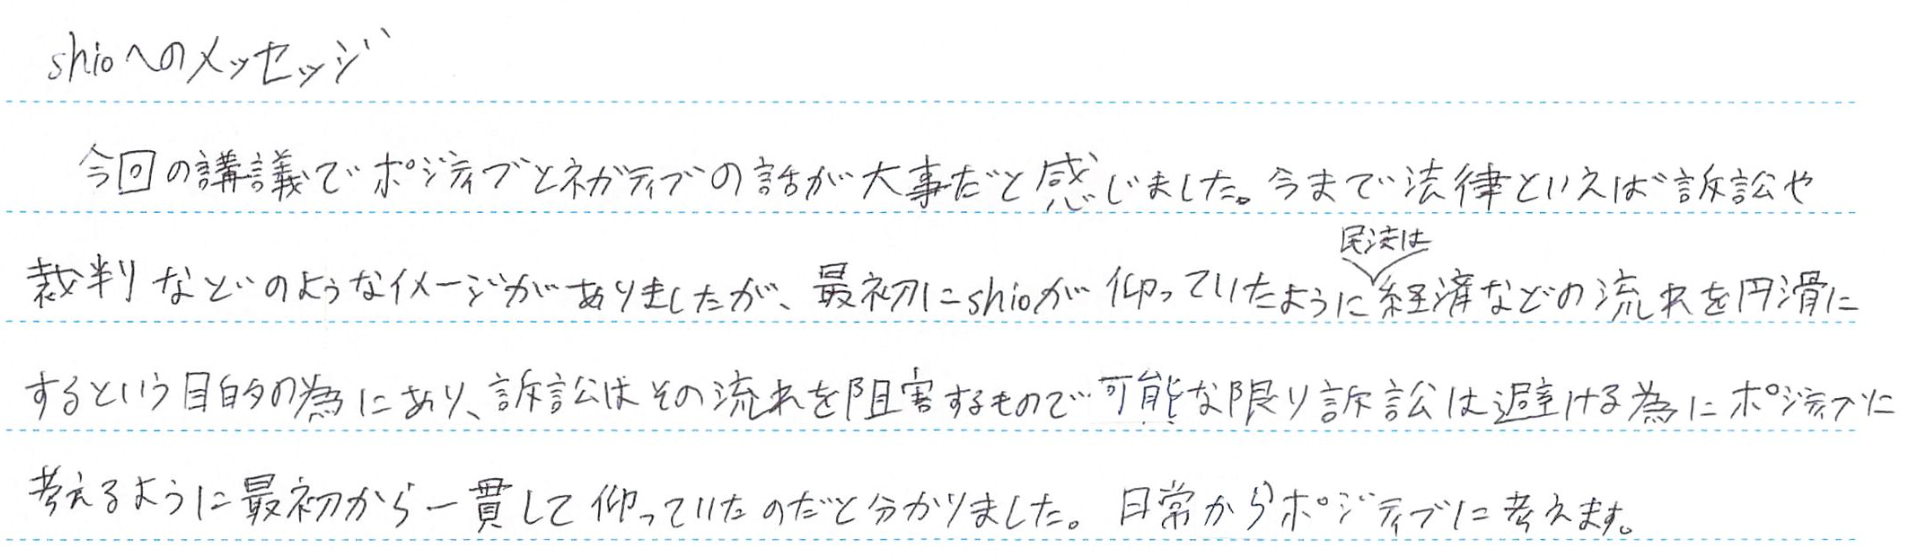 shioへのメッセージ
今回の講義でポジティブとネガティブの話が大事だと感じました。今まで法律といえば訴訟や
裁判などのようなイメージがありましたが、最初にshioが仰っていたように民法は経済などの流れを円滑に
するという目的の為にあり、訴訟はその流れを阻害するもので可能な限り訴訟は避ける為にポジティブに
考えるように最初から一貫して仰っていたのだと分かりました。日常からポジティブに考えます。